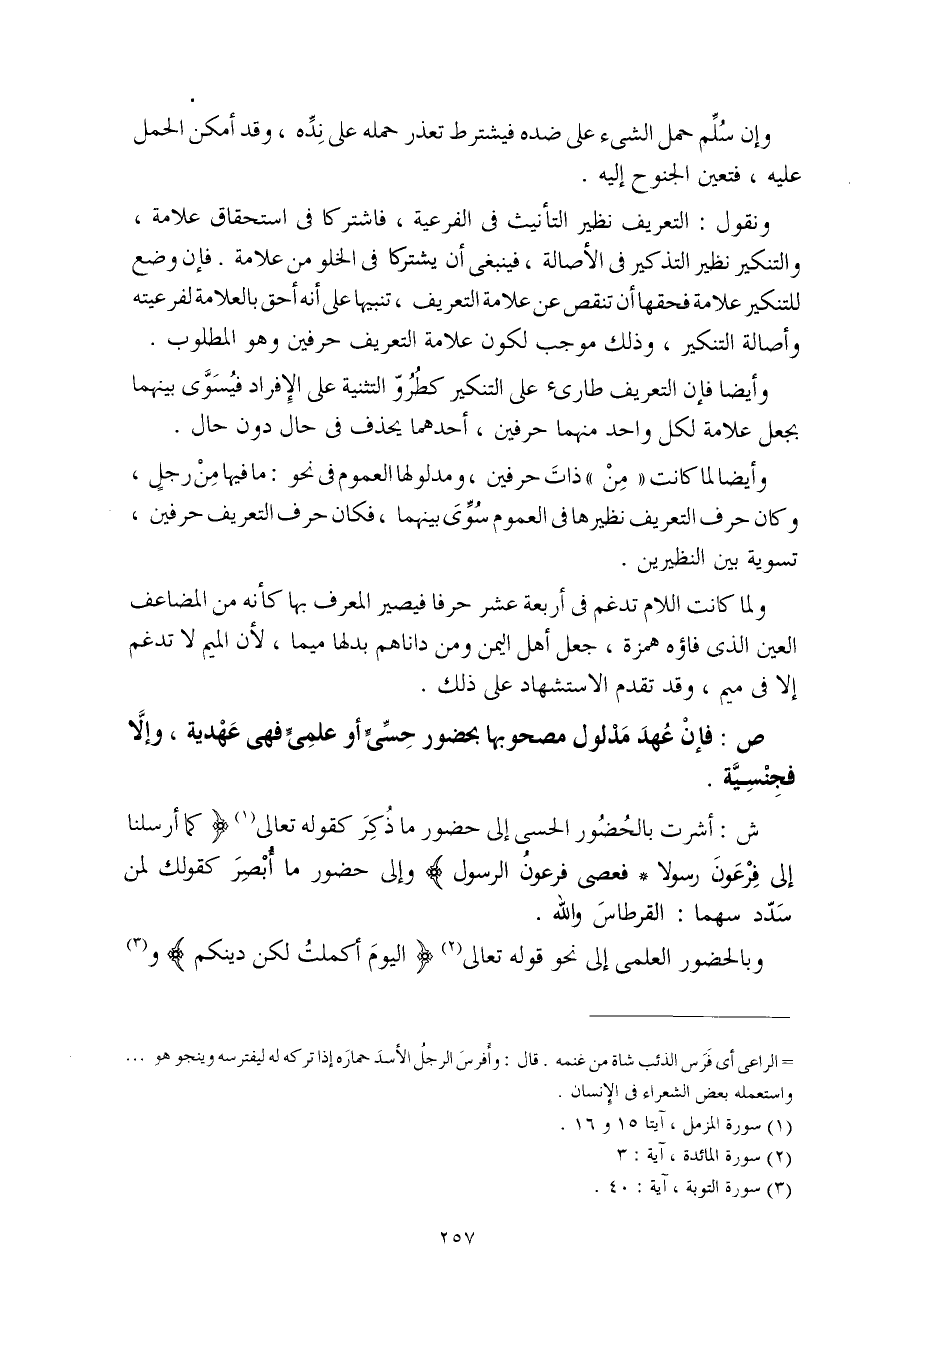 وإن سُلِّم حمل الشىء على ضده فيشترط تعذر حمله على نِدِّه ، وقد أمكن الحمل
عليه ، فتعين الجنوح إليه .
ونقول : التعريف نظير التأنيث فى الفرعية ، فاشتركا فى استحقاق علامة ،
والتنكير نظير التذكير فى الأصالة ، فينبغى أن يشتركا فى الخلو من علامة . فإن وضع
للتنكير علامة فحقها أن تنقص عن علامة التعريف ، تنبيها على أنه أحق بالعلامة لفرعيته
وأصالة التنكير ، وذلك موجب لكون علامة التعريف حرفين وهو المطلوب .
وأيضا فإن التعريف طارىء على التنكير كطُرُوّ التثنية على الإفراد فيُسَوَّى بينهما
بجعل علامة لكل واحد منهما حرفين ، أحدهما يحذف فى حال دون حال .
وأيضا لما كانت « مِنْ » ذاتَ حرفين ، ومدلولها العموم فى نحو : ما فيها مِنْ رجلٍ ،
وكان حرف التعريف نظيرها فى العموم سُوِّىَ بينهما ، فكان حرف التعريف حرفين ،
تسوية بين النظيرين .
ولما كانت اللام تدغم فى أربعة عشر حرفا فيصير المعرف بها كأنه من المضاعف
العين الذى فاؤه همزة ، جعل أهل اليمن ومن داناهم بدلها ميما ، لأن الميم لا تدغم
إلا فى ميم ، وقد تقدم الاستشهاد على ذلك .
ص : فإنْ عُهدَ مَدْلول مصحوبها بحضور حِسِّىٍّ أو علمِىٍّ فهى عَهْدية ، وإلَّا
فجِنْسِيَّة .
ش : أشرت بالحُضُور الحسى إلى حضور ما ذُكِرَ كقوله تعالى(١) ﴿ كما أرسلنا
إلى فِرْعَونَ رسولا * فعصى فرعونُ الرسول ﴾ وإلى حضور ما أُبْصِرَ كقولك لمن
سَدّد سهما : القرطاسَ والله .
وبالحضور العلمى إلى نحو قوله تعالى(٢) ﴿ اليومَ أكملتُ لكن دينكم ﴾ و(٣)
= الراعى أى فَرَس الذئب شاة من غنمه . قال : وأَفرسَ الرجلُ الأسدَ حمارَه إذا تركه له ليفترسه وينجو هو ...
واستعمله بعض الشعراء فى الإنسان .
(١) سورة المزمل ، آيتا ١٥ و ١٦ .
(٢) سورة المائدة ، آية : ٣
(٣) سورة التوبة ، آية : ٤٠ .
٢٥٧